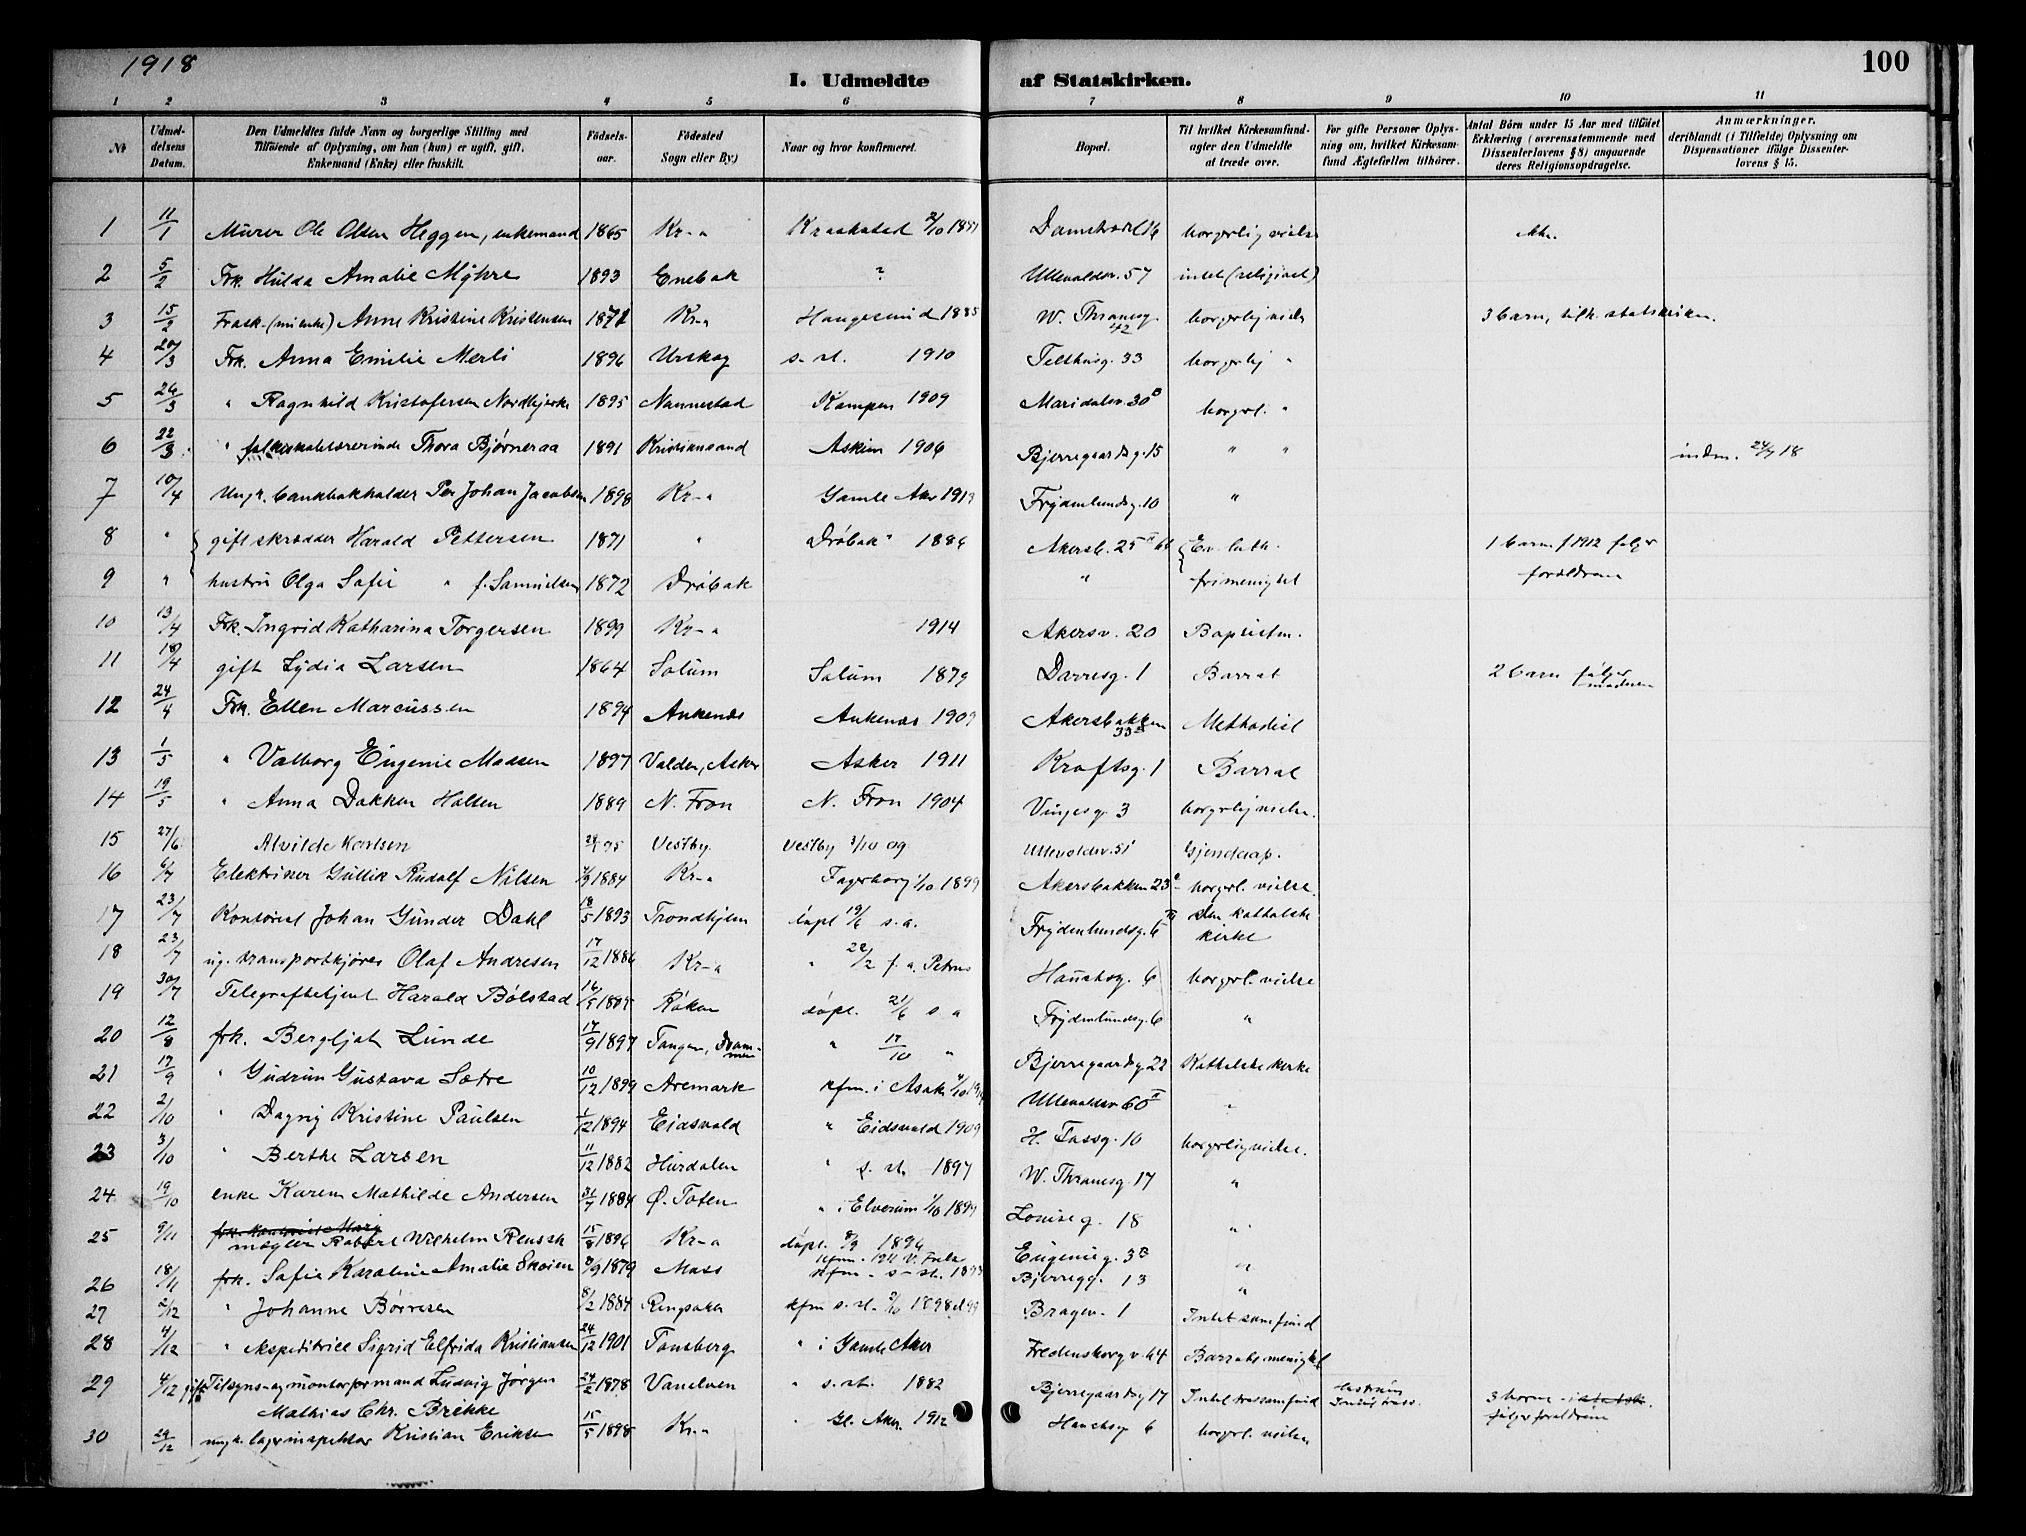 1918
100
I. Udmeldte af Statskirken.
1 2 3 4 5 6 7 8 9 10 11
№
Udmeldelsens Datum.
Den Udmeldtes fulde Navn og borgerlige Stilling med Tilføiende af Oplysning, om han (hun) er ugift, gift. Enkemand (Enke) eller fraskilt.
Fødselsaar.
Fødested Sogn eller By.)
Naar og hvor konfirmeret.
Bopæl.
Til hvilket Kirkesamfundagter den Udmeldte at træde over.
For gifte Personer Oplysning om, hvilket Kirkesamfund Ægtefællen tilhører.
Antal Børn under 15 Aar med tilføiet Erklæring (overensstemmende med Dissenterlovens § 8) angaaende deres Religionsopdragelse.
Anmærkninger, deriblandt (i Tilfælde) Oplysning om Dispensationer ifølge Dissenterlovens § 15.
1 11/1 Murer Ole Olsen Heggen, enkemand 1865 Kr-a Kraakstad 2/10 1881 16 borgerlig vielse
2 5/2 Frk. Hulda Amalie Myhre 1893 Enebak ? Ullevaldsv. 57 intet (religiøst)
3 15/2 Frask. Anne Kristine Kristensen 1871 Kr-a Haugesund 1885 W. Thranesg. 42 borgerlig vielse 3 barn, tilh. statskirken.
4 20/3 Frk. Anna Emilie Merli 1896 Urskog s. st. 1910 Telthusg. 33 borgerlig "
5 26/3 " Ragnhild Kristofersen 1895 Nannestad Kampen 1909 Maridalsv. 30 B borgerl. "
6 22/3 " folkeskolelærerinde Thora Bjørneraa 1891 Kristianssand Askim 1906 Bjerregaardsg. 15 " " indm. 24/7 18
7 10/4 Ungk. bankbokholder Per Johan Jacobsen 1898 Kr-a Gamle Aker 1913 Frydenlundsg. 10 "
8 " gift skrædder Harald Pettersen 1871 " Drøbak 1886 Akersb. 25 Ev. luth. 1 barn f 1912 følger
9 " hustru Olga Sofie " f. Samuelsen 1872 Drøbak " frimenighet forældrene
10 13/4 Frk. Ingrid Katharina Torgersen 1899 Kr-a 1914 Akersv. 20 Baptistm.
11 18/4 gift Lydia Larsen 1864 Solum Solum 1879 Darresg. 1 Barrat 2 barn følger moderen
12 24/4 Frk. Ellen Marcussen 1894 Ankenes Ankenes 1909 Akersbakken 33 Methodist
13 1/5 " Valborg Eugenie Madsen 1897 Valden, Asker Asker 1911 Kroftsg. 1 Barrat
14 19/5 " Anna Dakken Holsen 1889 N. Fron N. Fron 1904 Vinjesg. 3 borgerlig vielse.
15 27/6 Alvilde Karlsen 95 Vestby. Vestby 3/10 09 Ullevoldsv. 51
16 6/7 Elektriker Gullik Rudolf Nilsen 1884 Kr-a Fagerborg 1/10 1899 Akersbakken 23 borgerl. vielse.
17 23/7 Kontorist Johan Gunder Dahl 18/5 1893 Trondhjem døpt 19/6 s. a. Frydenlundsg. 6 Den katholske kirke
18 23/7 ug. transportkjører Olaf Andresen 17/12 1886 Kr-a " 22/2 f. a. Petrus Hauchsg. 6 borgerl. vielse
19 30/7 Telegrafbetjent Harald Bølstad 16/5 1885 Røken døpt. 21/6 s. a Frydenlundsg. 6 "
20 12/8 frk. Bergljot Lunde 17/9 1897 Tangen, Drammen " 17/10 " Bjerregaardsg 22 Katholske kirke
21 17/9 " Gudrun Gustava Sætre 10/12 1899 Aremark kfm. i Asak Ullevaldsv 60 II "
22 2/10 " Dagny Kristine Paulsen 1/12 1894 Eidsvold " Eidsvold 1909 H. Tassg. 10 borgerlig vielse.
23 3/10 " Berthe Larsen 11/12 1882 Hurdalen " s. st. 1897 W. Thranesg. 17 "
24 19/10 enke Karen Mathilde Andersen 31/7 1884 Ø. Toten " i Elverum 1/10 1899 Louiseg. 18 "
25 9/11 mægler Robert Wilhelm Reussh 15/8 1896 Kr-a døpt. 8/9 1896 kfm. 1911 V. Frelse Eugenieg. 3B "
26 18/11 frk. Sofie Karoline Amalie Skoien 1879 Moss kfm. s. st. 1893 Bjerregg. 13 "
27 2/12 " Johanne Børresen 8/2 1884 Ringsaker kfm s. st. 1898 el 99 Bragev. 1 Intet samfund
28 4/12 " ekspeditrice Sigrid Elfrida Kristiansen 24/12 1901 Tønsberg " i Gamle Aker Fredensborgv. 64 Barrats menighet
29 4/12 gift Tilsyns- og montørformand Ludvig Jørgen Mathias Chr. Brekke 24/2 1878 Vanelven " s. st. 1882 Bjerregaardsg 17 Intet trossamfund hustru 3 børn følger forældrene
30 29/12 ungk. lagerinspektør Kristian Eriksen 15/5 1898 Kr-a " Gl. Aker. 1912 Hauchsg 6 borgerl. vielse